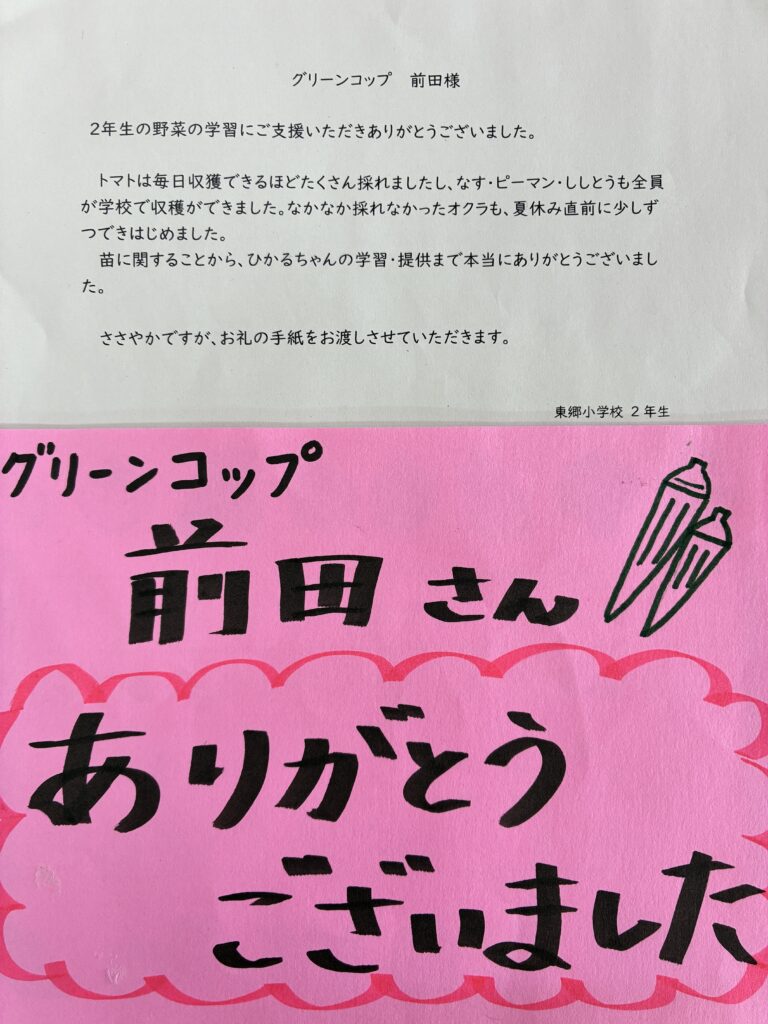 グリーンコップ　前田様
2年生の野菜の学習にご支援いただきありがとうございました。
トマトは毎日収獲できるほどたくさん採れましたし、なす・ピーマン・ししとうも全員
が学校で収穫ができました。なかなか採れなかったオクラも、夏休み直前に少しず
つできはじめました。
苗に関することから、ひかるちゃんの学習・提供まで本当にありがとうございまし
た。
ささやかですが、お礼の手紙をお渡しさせていただきます。
東郷小学校 2年生
グリーンコップ
前田さん
ありがとう
ございました